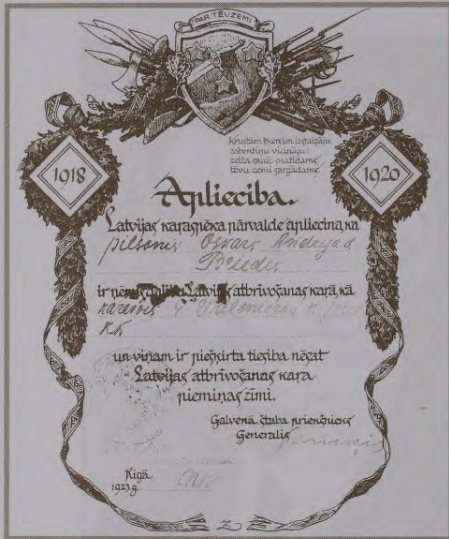 PAR TĒVZEMI
Krustām šķērsām izstaigāju
zobentiņu vicināju:
tēvu zemi
1918
1920
Apliecība.
Latvijas karaspēka pārvalde apliecina, ka
pilsonis Oskars Andreja d.
Priedis
ir Latvijas atbrīvošanas karā, kā
kareivis 4. Valmieras k. p.
un viņam ir piešķirta tiesība nēsāt
Latvijas atbrīvošanas kara
piemiņas zīmi.
Galvenā štaba priekšnieks
Ģenerālis
Rīgā
1923.g.